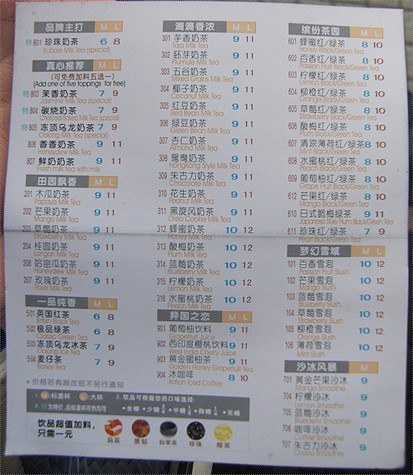 品牌主打 M L
特801 珍珠奶茶 6 8
Bubble Milk Tea (special)
真心推荐 M L
(可免费加料五选一)
(Add one of five toppings for free)
特803 茉香奶茶 7 9
Jasmine Milk Tea (special)
特804 碳烧奶茶 7 9
特805 冻顶乌龙奶茶 7 9
Oolong Milk Tea (special)
806 香香奶茶 9 11
807 鲜奶奶茶 9 11
Fresh milk Tea with milk
田园飘香 M L
201 木瓜奶茶 9 11
Papaya Milk Tea
202 芒果奶茶 9 11
Mango Milk Tea
203 草莓奶茶 9 11
Strawberry Milk Tea
204 桂圆奶茶 9 11
Longan Milk Tea
206 哈密瓜奶茶 9 11
Honeydew Milk Tea
207 玫瑰奶茶 9 11
Rose Milk Tea
一品纯香 M L
501 英国红茶 6 8
British Black Tea
502 极品绿茶 6 8
Classic Green Tea
503 冻顶乌龙冰茶 7 9
Oolong Ice Tea
504 麦仔茶 7 9
Barley Tea
滴滴香浓 M L
301 芋香奶茶 9 11
Taro Milk Tea
302 胚芽奶茶 9 11
Plumule Milk Tea
303 五谷奶茶 9 11
Mixed Grain Milk Tea
304 椰子奶茶 9 11
Coconut Milk Tea
305 红豆奶茶 9 11
Red Bean Milk Tea
306 绿豆奶茶 9 11
Green Bean Milk Tea
307 杏仁奶茶 9 11
Almond Milk Tea
308 鸳鸯奶茶 9 11
Hongkong Style Milk Tea
309 朱古力奶茶 9 11
Chocolate Milk Tea
310 花生奶茶 9 11
Peanut Milk Tea
311 黑旋风奶茶 9 11
Oreo Cookie Milk Tea
312 蜂蜜奶茶 10 12
Honey Milk Tea
313 酸梅奶茶 10 12
Plum Milk Tea
314 蓝莓奶茶 10 12
Blueberry Milk Tea
315 柠檬奶茶 10 12
Lemon Milk Tea
316 水蜜桃奶茶 10 12
Peach Milk Tea
异国之恋 M L
901 葡萄柚饮料 9 11
Grapefruit Juice
902 西印度樱桃饮料 9 11
West India Cherry Juice
903 黄金蜜柚茶 9 11
Golden Honey Grapefruit Tea
904 冰咖啡 8 10
Italian Iced Coffee
缤纷茶园 M L
601 蜂蜜红/绿茶 8 10
Honey Black/Green Tea
602 百香红/绿茶 8 10
Passion Fruit Black/Green Tea
603 柠檬红/绿茶 8 10
Lemon Black/Green Tea
604 柳橙红/绿茶 8 10
Orange Black/Green Tea
605 草莓红/绿茶 8 10
Strawberry Black/Green Tea
606 酸梅红/绿茶 8 10
Plum Black/Green Tea
607 清凉薄荷红/绿茶 8 10
Mint Black/Green Tea
608 水蜜桃红/绿茶 8 10
Peach Black/Green Tea
609 葡萄柚红/绿茶 8 10
Grape Fruit Black/Green Tea
612 芒果红/绿茶 8 10
Mango Black/Green Tea
610 日式脆梅绿茶 9 11
Japanese Style Plum Black/Green Tea
611 珍珠红/绿茶 7 9
Pearl Black/Green Tea
梦幻雪域 M L
101 百香雪泡 10 12
Passion Fruit Slush
102 芒果雪泡 10 12
Mango Slush
103 蓝莓雪泡 10 12
Blueberry Slush
104 草莓雪泡 10 12
Strawberry Slush
105 柳橙雪泡 10 12
Orange Slush
106 薄荷雪泡 10 12
Mint Slush
沙冰风暴 M
701 黄金芒果沙冰 9
Mango Smoothie
704 柠檬沙冰 9
Lemon Smoothie
705 蓝莓沙冰 9
Blueberry Smoothie
706 咖啡沙冰 9
Coffee Smoothie
707 朱古力沙冰 9
Chocolate Smoothie
饮品超值加料,
只需一元
珍珠
椰果